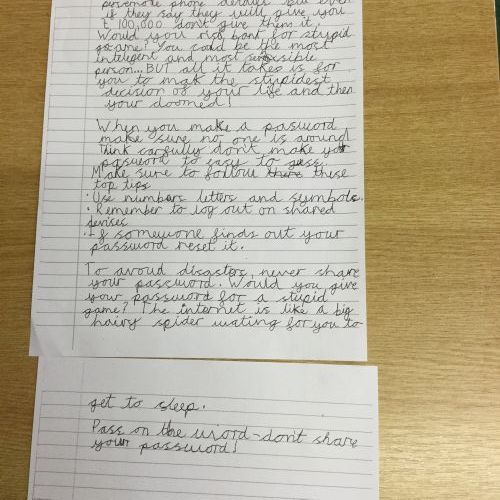 phone default but even
if they say they will give you
£100,000 don't give them it.
Would you for stupid
game? You could be the most
inteligent and most sensible
person... BUT all it takes is for
you to mak the stupidest
decision of your life and then
your doomed!
When you make a pasword
make sure no one is around!
Think carfully don't make your
pasword to easy to guess.
Make sure to follow there these
top tips
• Use numbers letters and symbols.
• Remember to log out on shared
devises
• If somewone finds out your
password reset it.
To avoud disasters, never share
your password. Would you give
your password for a stupid
game? The internet is like a big
hairy spider wating for you to
get to sleep.
Pass on the word - don't share
your password!